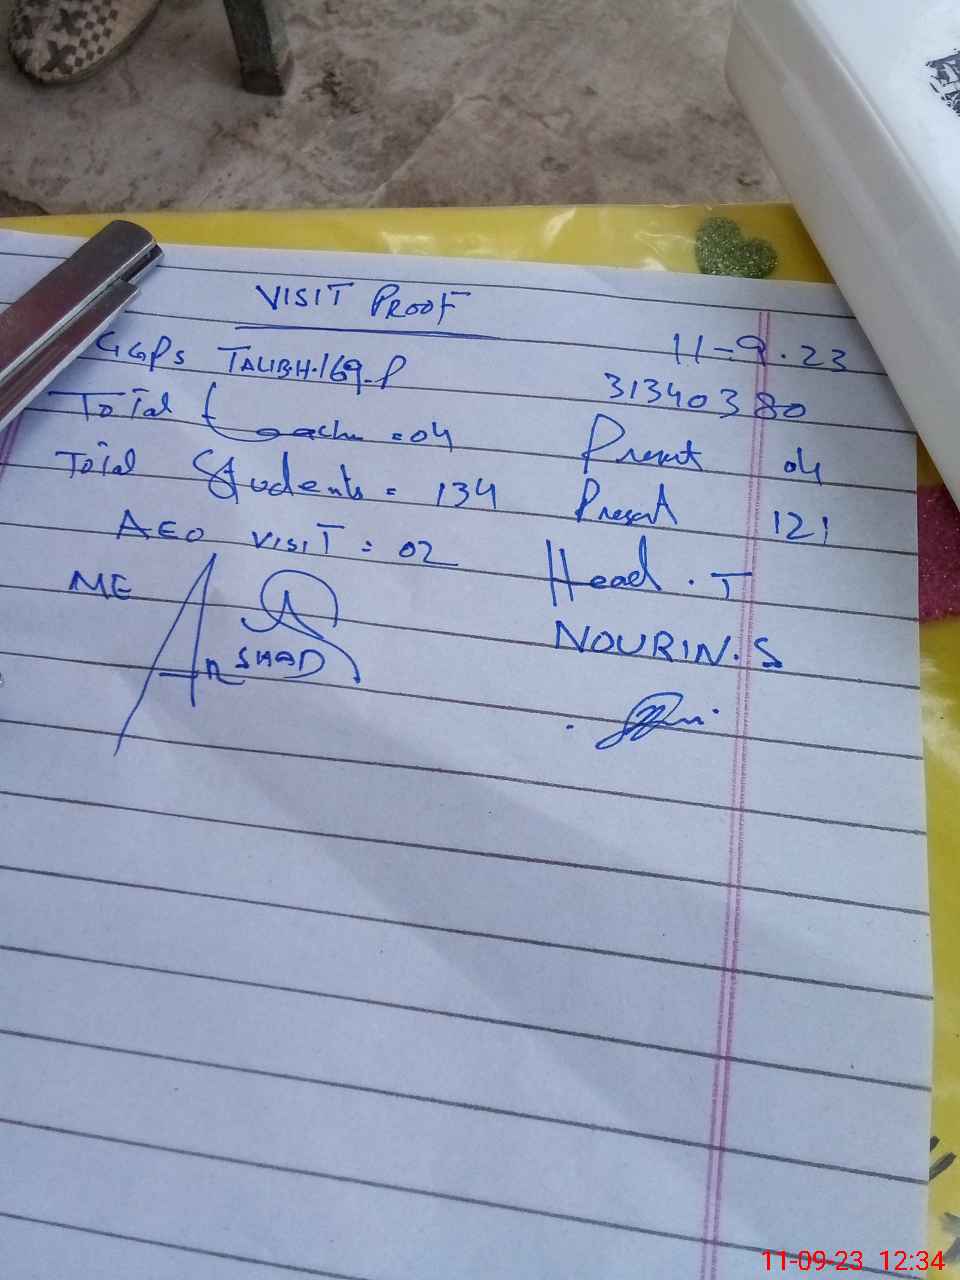 VISIT PROOF
11-9.23
GGPS TALIBH.169-P
31340380
Total teacher = 04 Present 04
Total Students = 134 Present 121
AEO VISIT = 02 Head. T
ME
NOURIN.S
SHAD
11-09-23 12:34